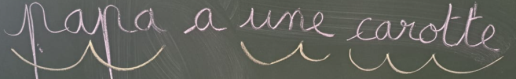 papa a une carotte